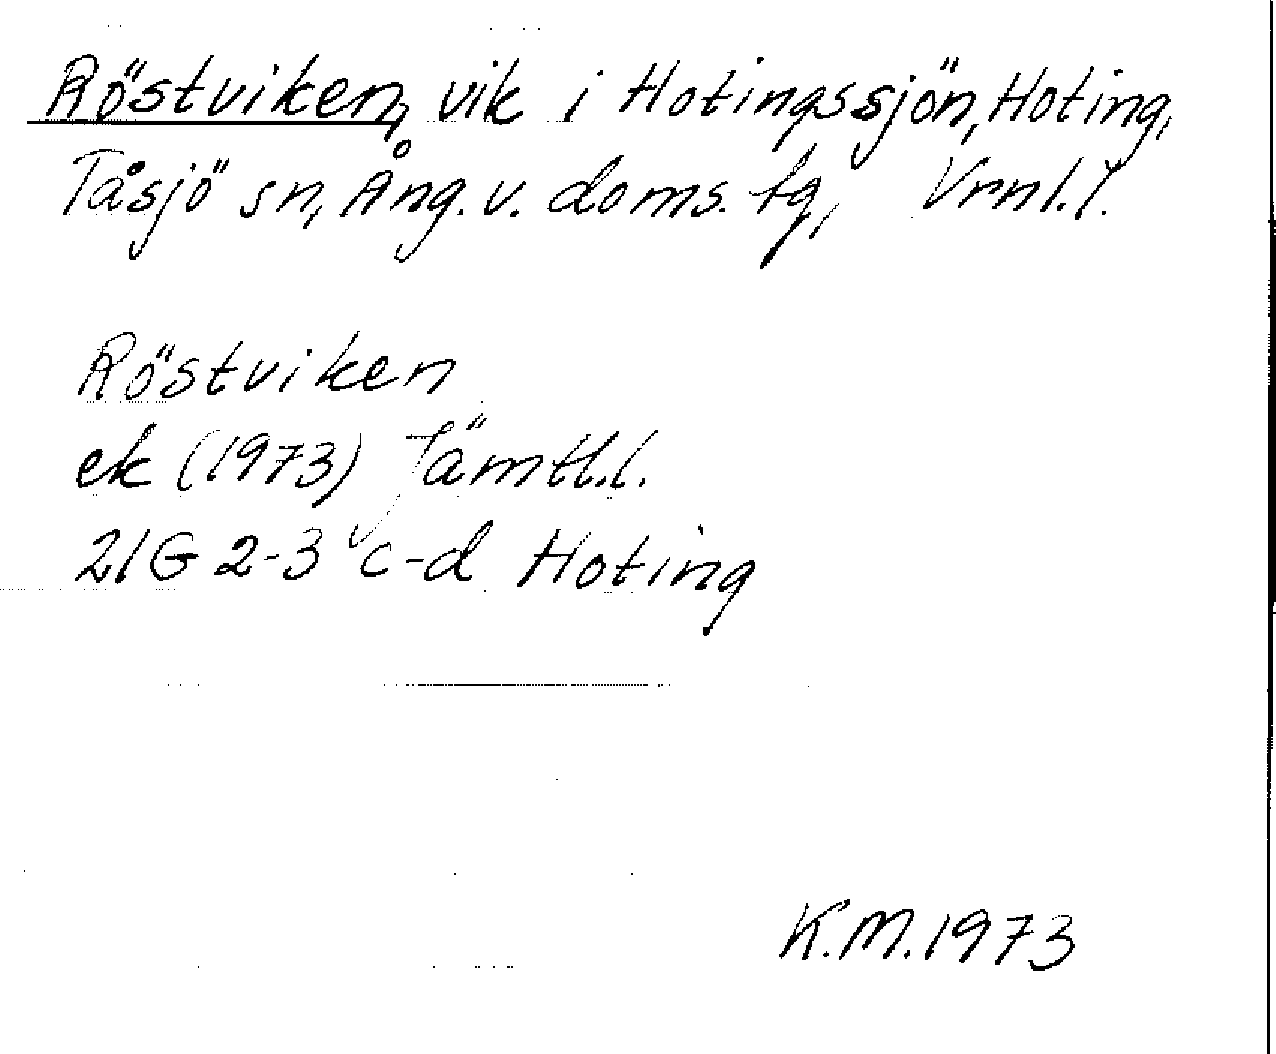 Röstviken, vik i Hotingssjön, Hoting,
Tåsjö sn, Ång. v. doms. tg, Vrnl. l.
Röstviken
ek (1973) Jämtl. l.
21G 2-3 c-d Hoting
K.M. 1973